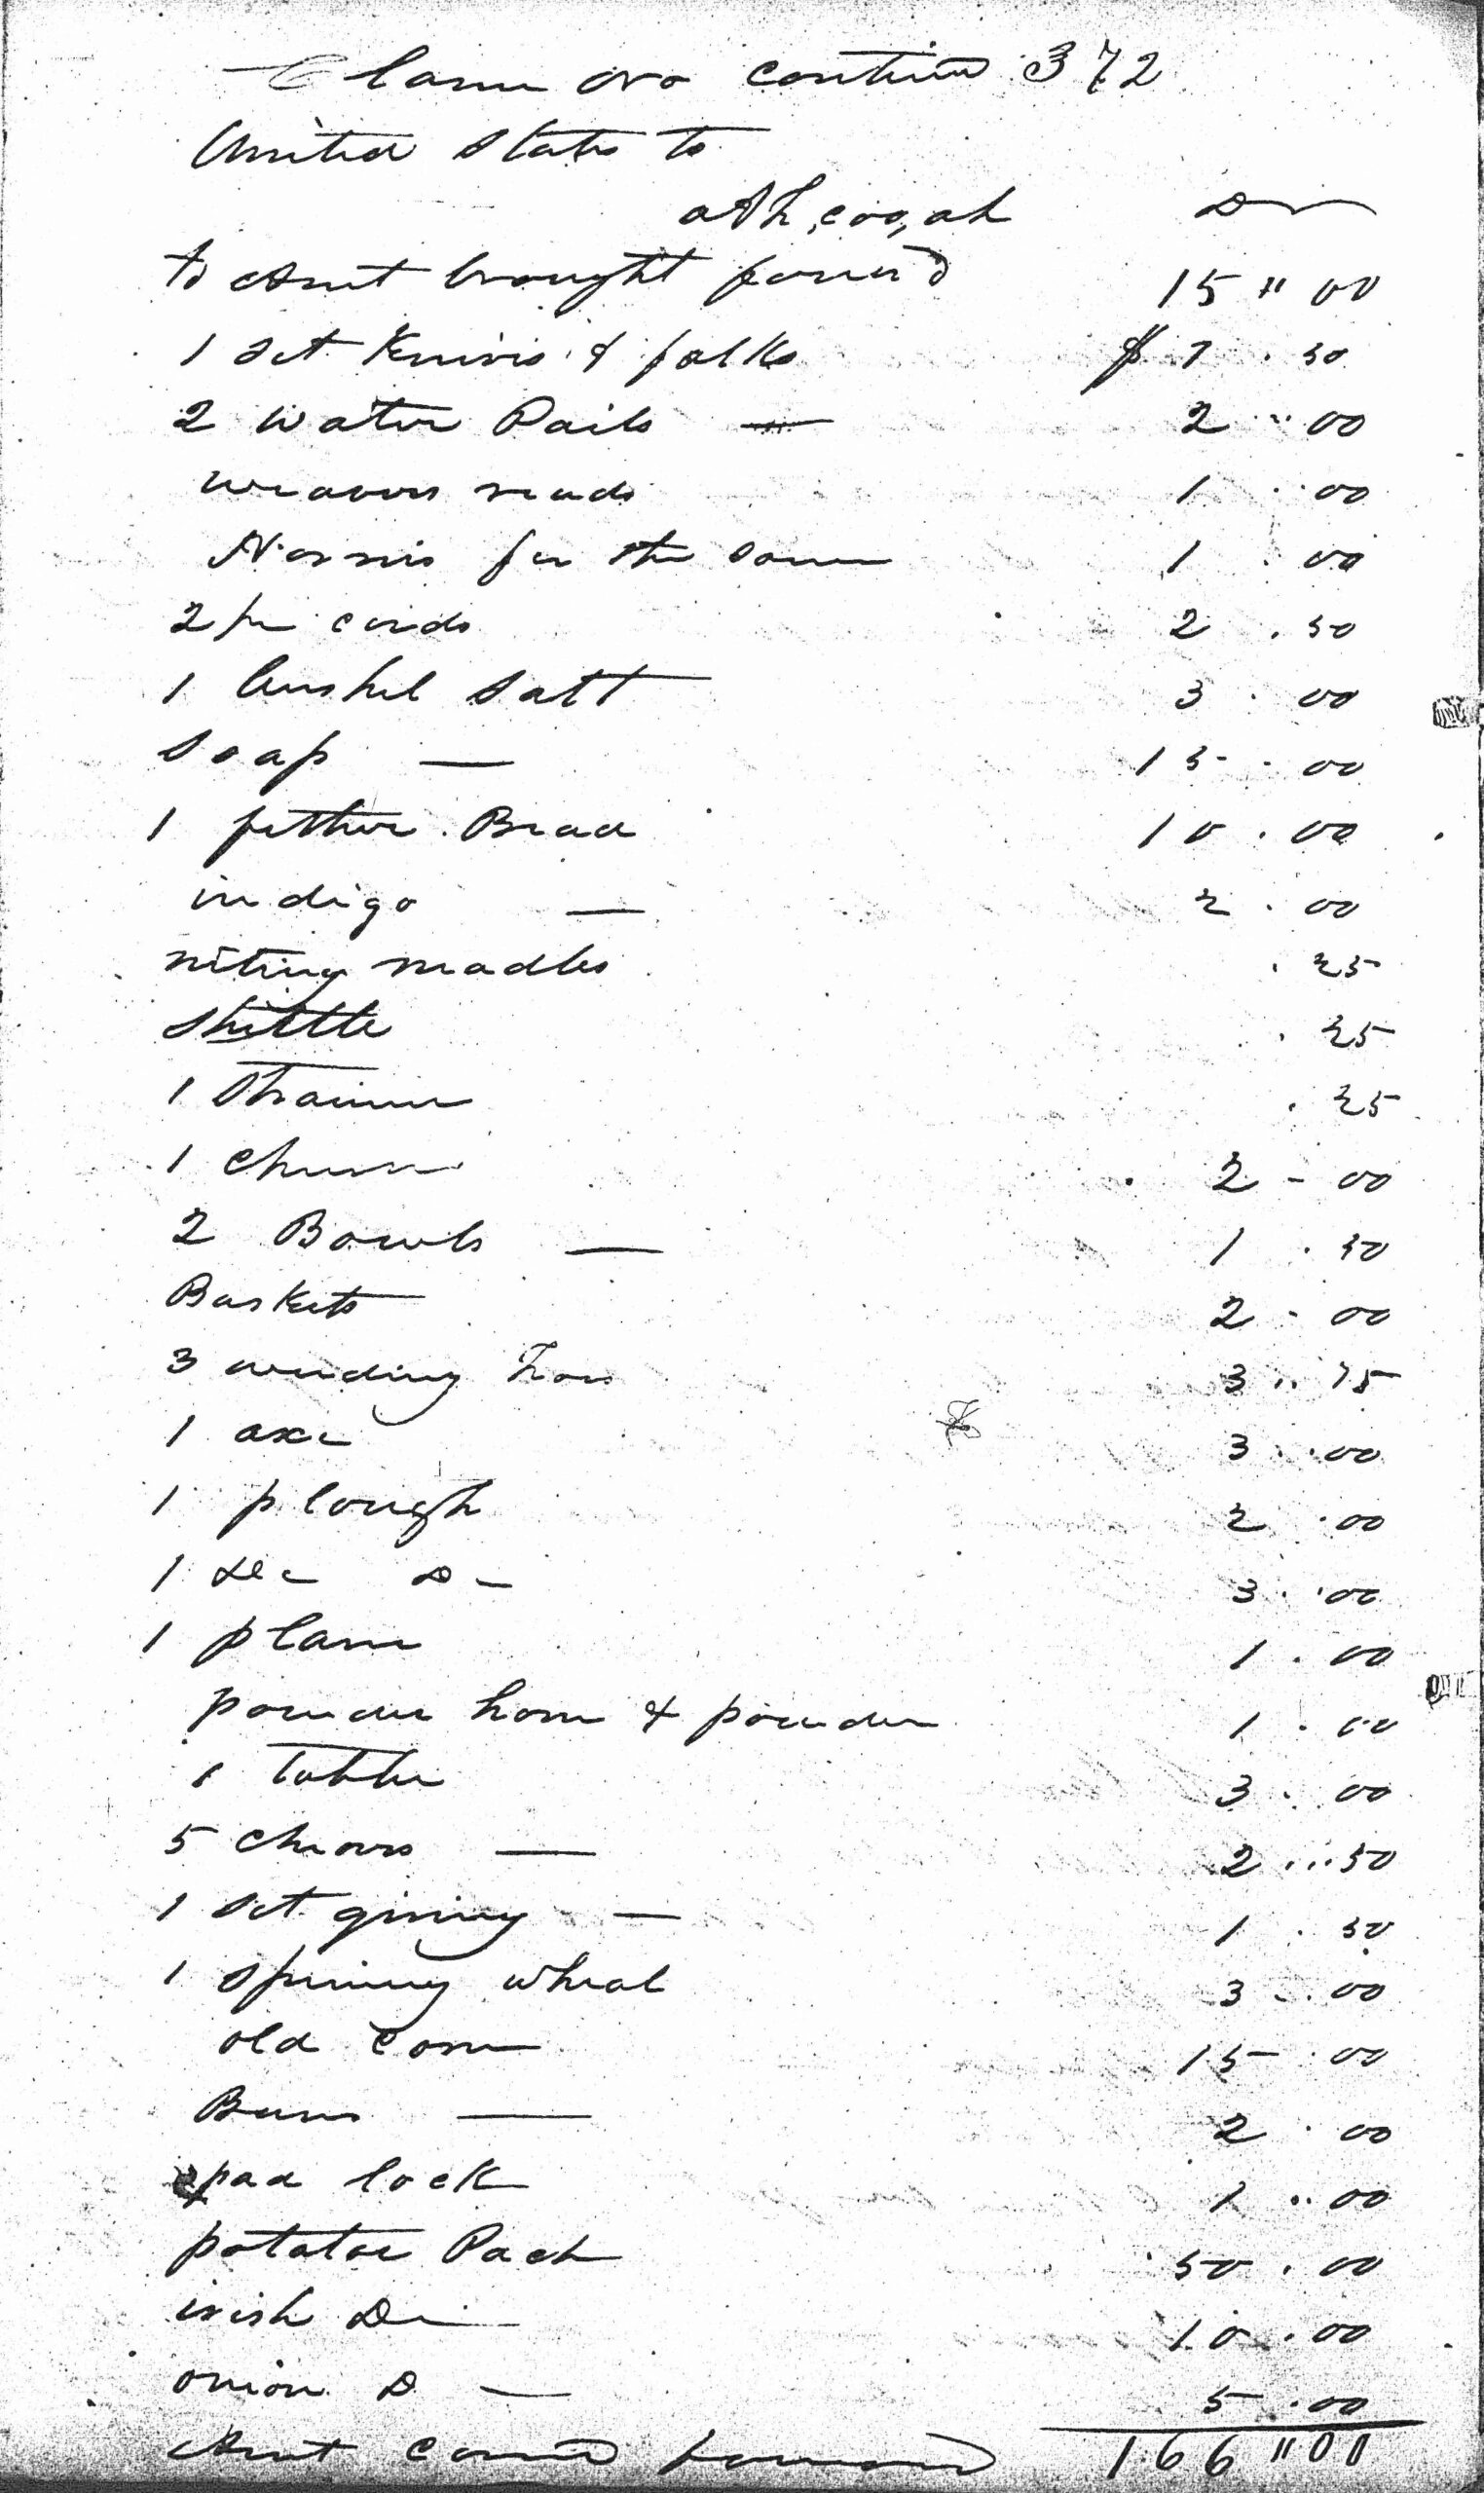 Clame No contind 372
United States to
ath,coo,ah Dr
to Amt brought forward 15 " 00
1 Set Knivis & folks $ 1 . 50
2 Water Pails — 2 " 00
weavers reads 1 . 00
Narnis for the same 1 . 00
2 pr cards 2 . 50
1 bushel Salt 3 . 00
Soap — 15 . 00
1 fether Bead 10 . 00
indigo — 2 . 00
niting neadles . 25
Shittle . 25
1 Strainer . 25
1 Churn 2 - 00
2 Bowls — 1 . 50
Baskets 2 - 00
3 weeding hoes 3 .. 75
1 axe 3 . 00
1 plough 2 . 00
1 De Do 3 . 00
1 plane 1 . 00
powder horn & powder 1 . 00
1 table 3 . 00
5 Chears — 2 . 50
1 Set gining — 1 . 50
1 Spining wheal 3 . 00
old corn 15 . 00
Beans — 2 . 00
pad lock 1 .. 00
potatoe Pach 50 . 00
irish Do 10 . 00
onion D — 5 . 00
Amt carrd forward 166 " 00